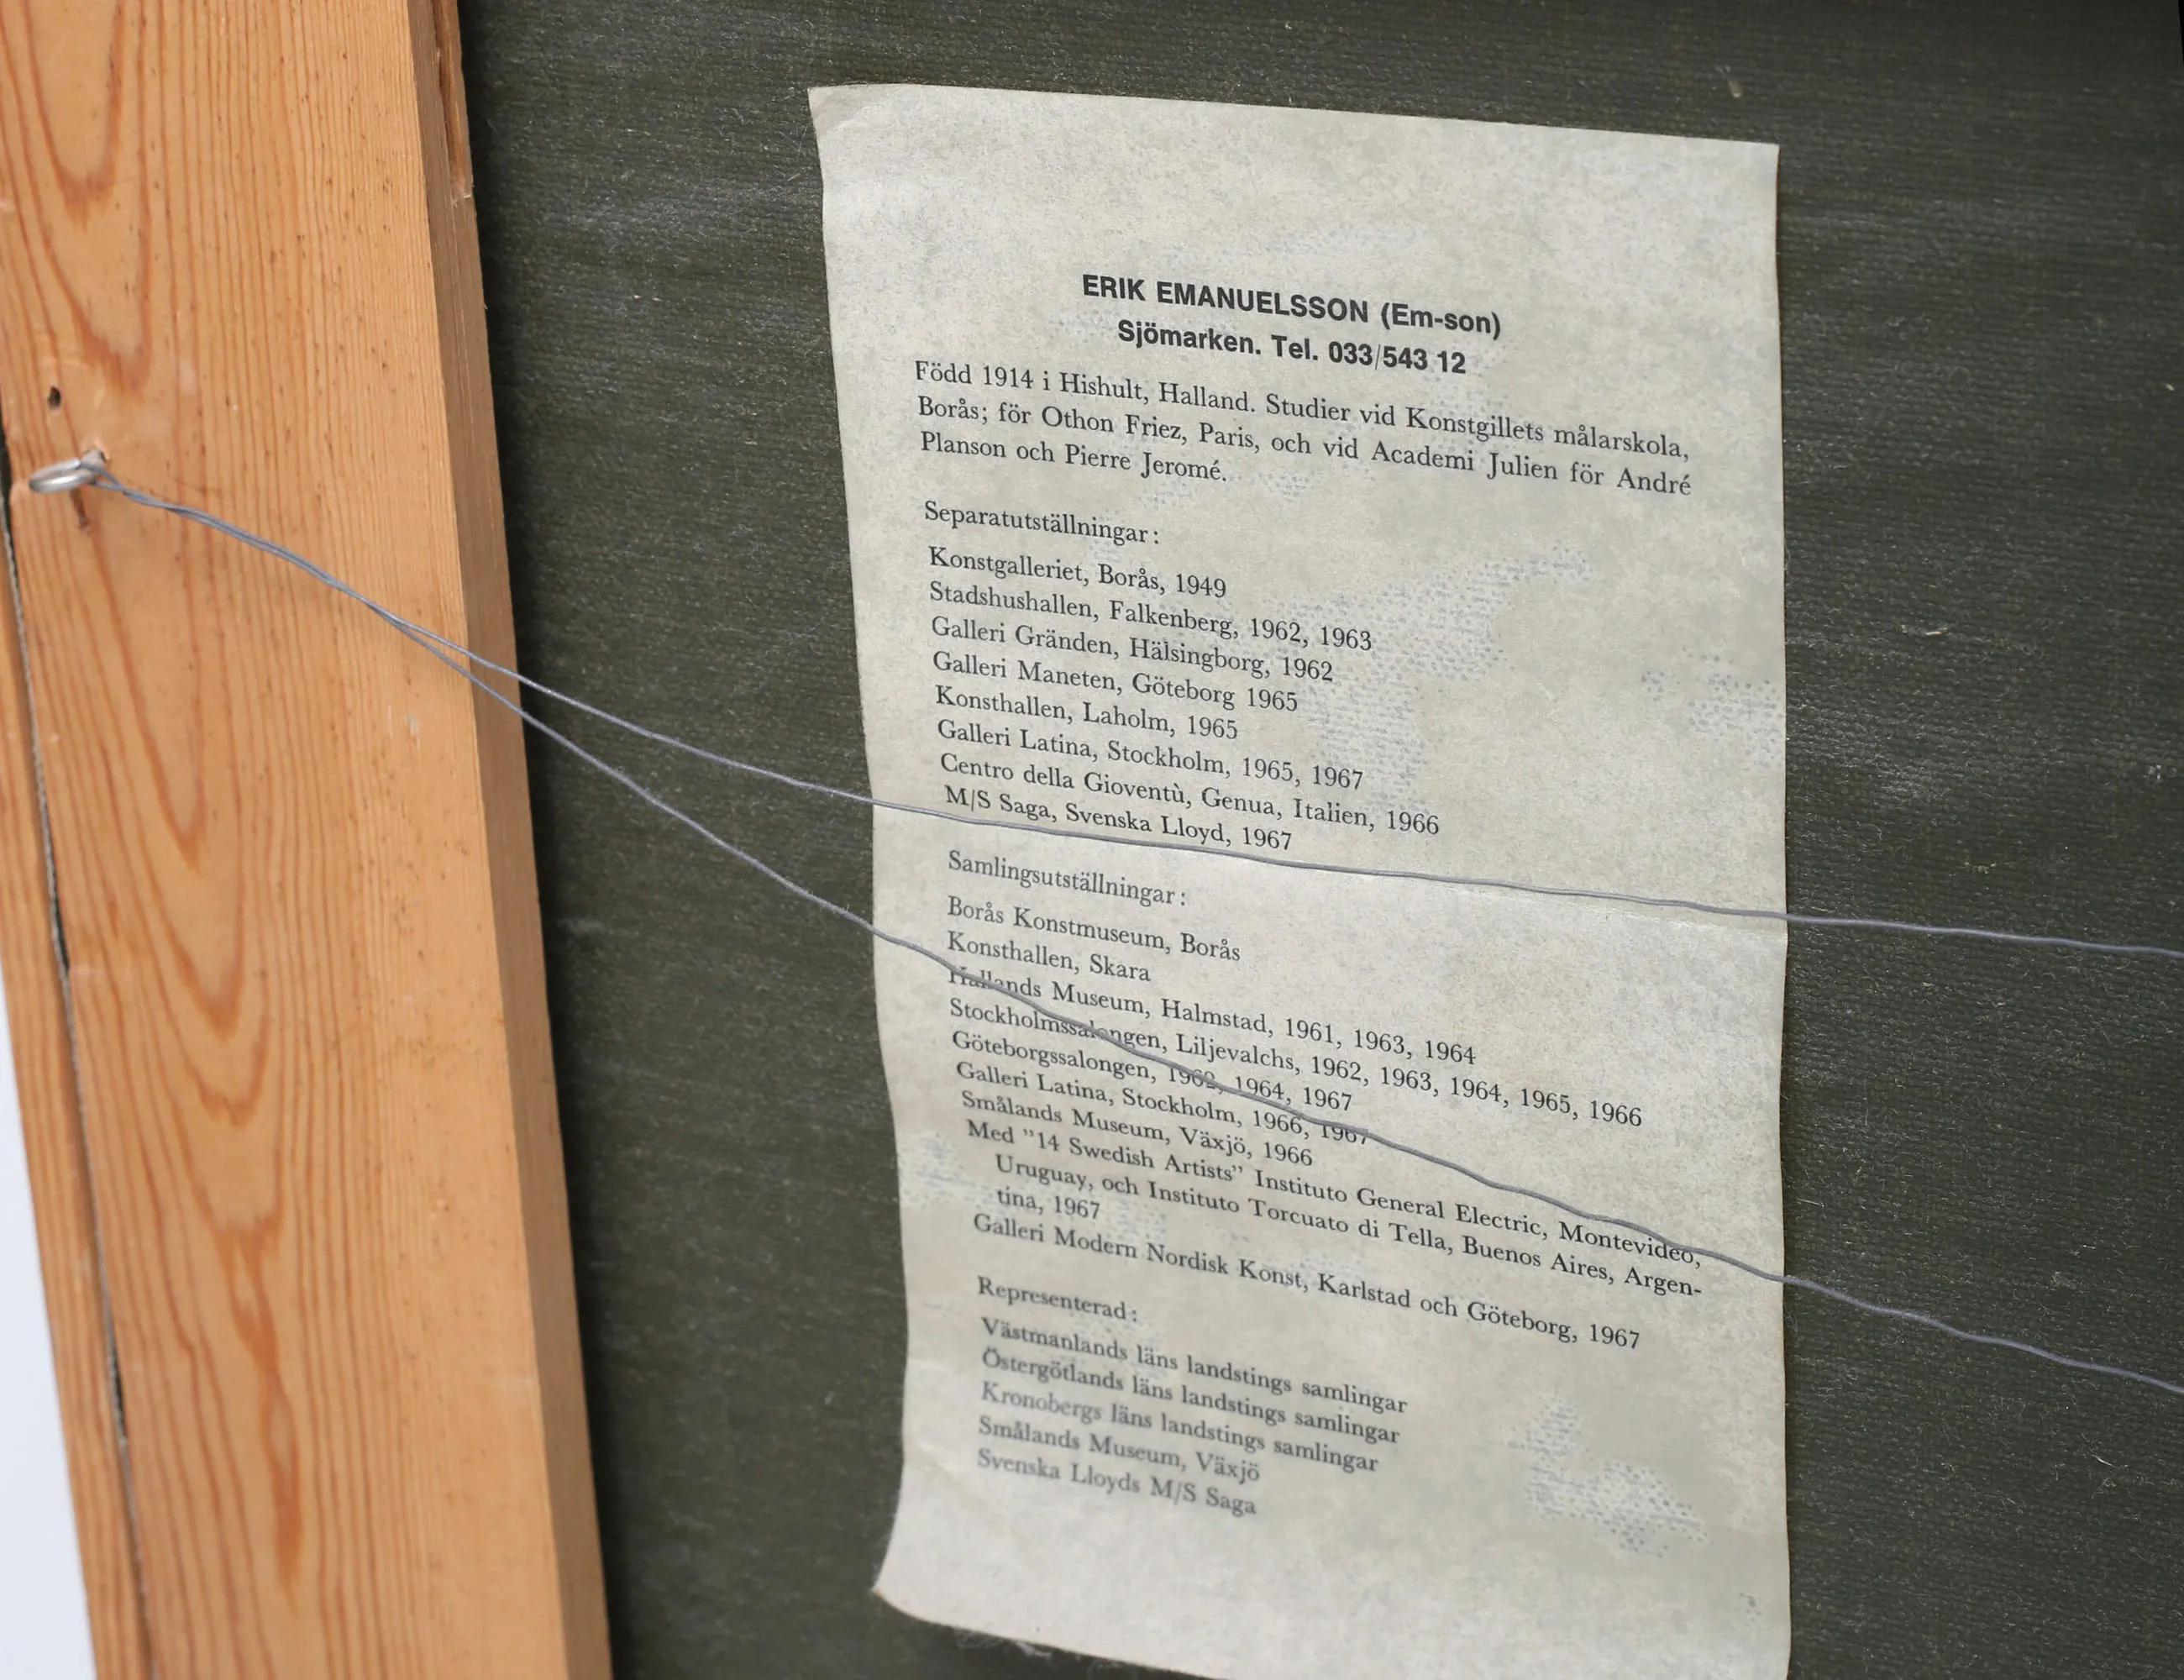 ERIK EMANUELSSON (Em-son)
Sjömarken. Tel. 033/543 12
Född 1914 i Hishult, Halland. Studier vid Konstgillets målarskola,
Borås; för Othon Friez, Paris, och vid Academi Julien för André
Planson och Pierre Jeromé.
Separatutställningar:
Konstgalleriet, Borås, 1949
Stadshushallen, Falkenberg, 1962, 1963
Galleri Gränden, Hälsingborg, 1962
Galleri Maneten, Göteborg 1965
Konsthallen, Laholm, 1965
Galleri Latina, Stockholm, 1965, 1967
Centro della Gioventù, Genua, Italien, 1966
M/S Saga, Svenska Lloyd, 1967
Samlingsutställningar:
Borås Konstmuseum, Borås
Konsthallen, Skara
Hallands Museum, Halmstad, 1961, 1963, 1964
Stockholmssalongen, Liljevalchs, 1962, 1963, 1964, 1965, 1966
Göteborgssalongen, 1962, 1964, 1967
Galleri Latina, Stockholm, 1966, 1967
Smålands Museum, Växjö, 1966
Med ”14 Swedish Artists” Instituto General Electric, Montevideo,
Uruguay, och Instituto Torcuato di Tella, Buenos Aires, Argen-
tina, 1967
Galleri Modern Nordisk Konst, Karlstad och Göteborg, 1967
Representerad:
Västmanlands läns landstings samlingar
Östergötlands läns landstings samlingar
Kronobergs läns landstings samlingar
Smålands Museum, Växjö
Svenska Lloyds M/S Saga